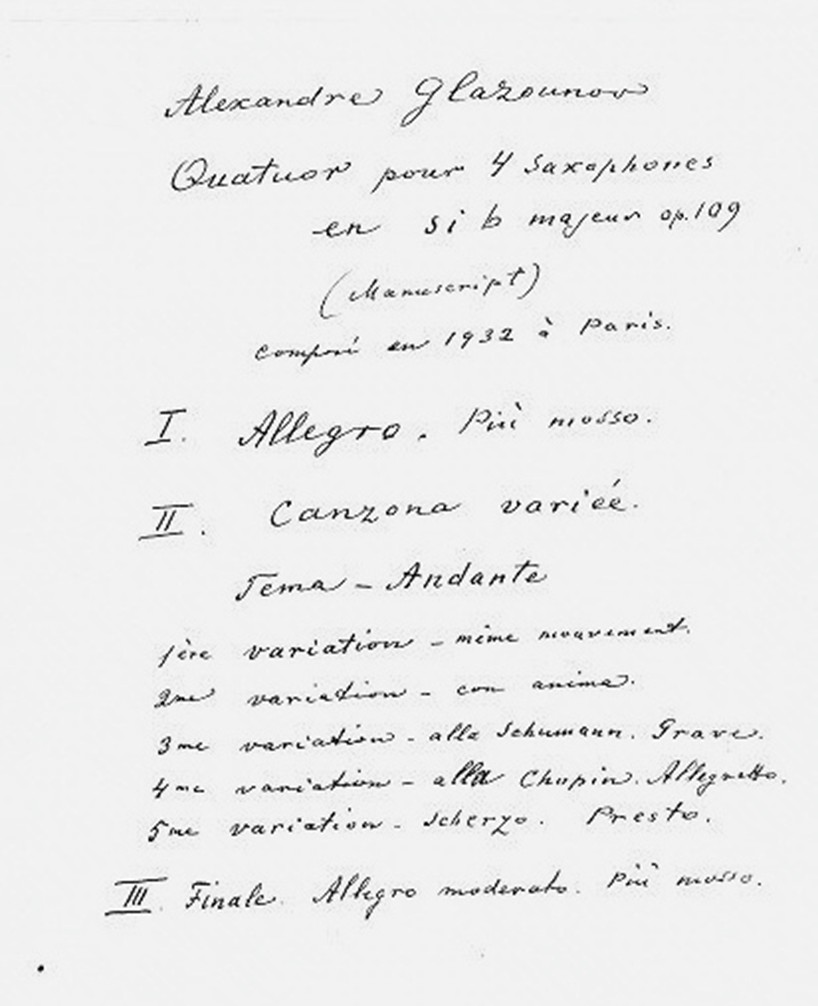 Alexandre Glazounov
Quatuor pour 4 Saxophones
en si b majeur op. 109
(Manuscript)
composé en 1932 à Paris.
I. Allegro. Più mosso.
II. Canzona variée.
Tema – Andante
1ère variation – même mouvement.
2me variation – con anima.
3me variation – alla Schumann. Grave.
4me variation – alla Chopin. Allegretto.
5me variation – Scherzo. Presto.
III. Finale. Allegro moderato. Più mosso.